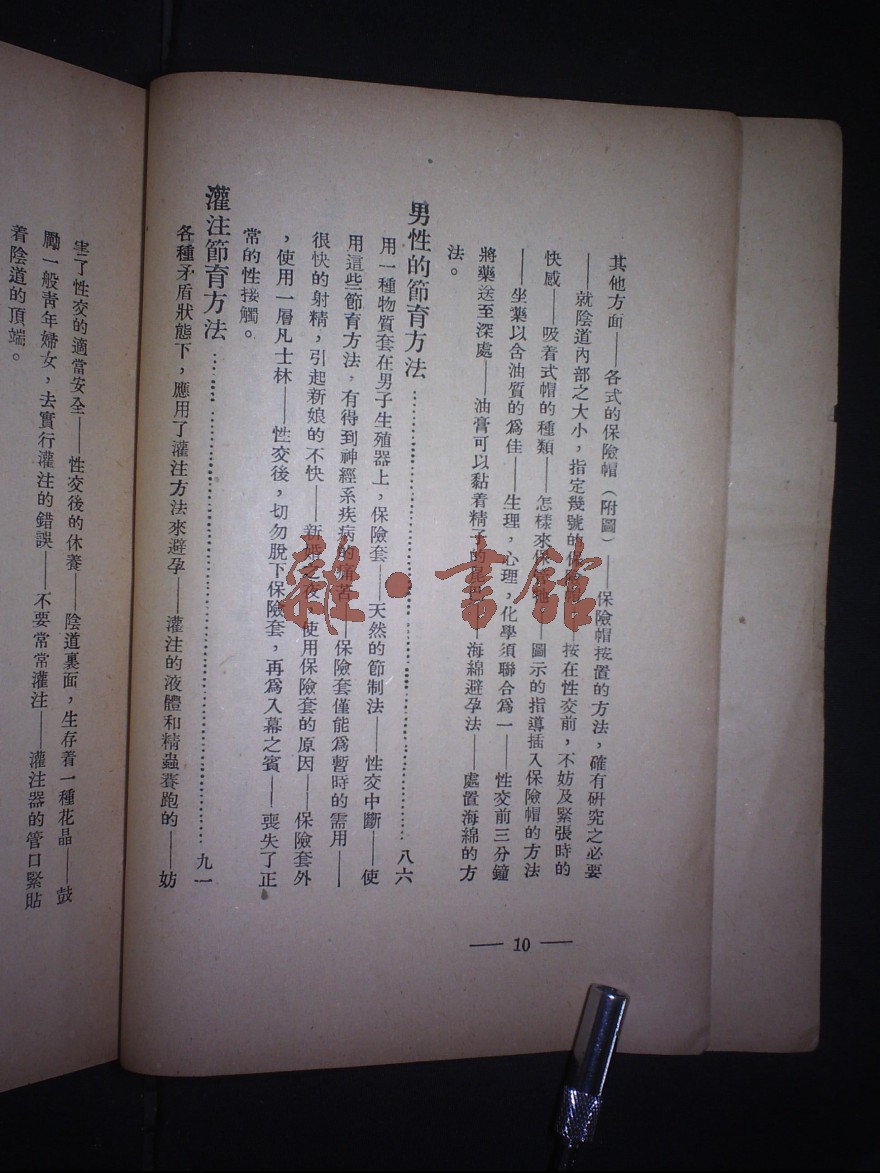 其他方面——各式的保險帽(附圖)——保險帽按置的方法,確有硏究之必要
——就陰道內部之大小,指定幾號的保險帽——按在性交前,不妨及緊張時的
快感——吸着式帽的種類——怎樣來保管牠——圖示的指導插入保險帽的方法
——坐藥以含油質的爲佳——生理,心理,化學須聯合爲一——性交前三分鐘
將藥送至深處——油膏可以黏着精子的——海綿避孕法——處置海綿的方
法。
男性的節育方法……八六
用一種物質套在男子生殖器上,保險套——天然的節制法——性交中斷——使
用這些節育方法,有得到神經系疾病的痛苦——保險套僅能爲暫時的需用——
很快的射精,引起新娘的不快——新婚之夜,使用保險套的原因——保險套外
,使用一層凡士林——性交後,切勿脫下保險套,再爲入幕之賓——喪失了正
常的性接觸。
灌注節育方法……九一
各種矛盾狀態下,應用了灌注方法來避孕——灌注的液體和精蟲賽跑的——妨
害了性交的適當安全——性交後的休養——陰道裏面,生存着一種花晶——鼓
勵一般靑年婦女,去實行灌注的錯誤——不要常常灌注——灌注器的管口緊貼
着陰道的頂端。
— 10 —
雜·書館